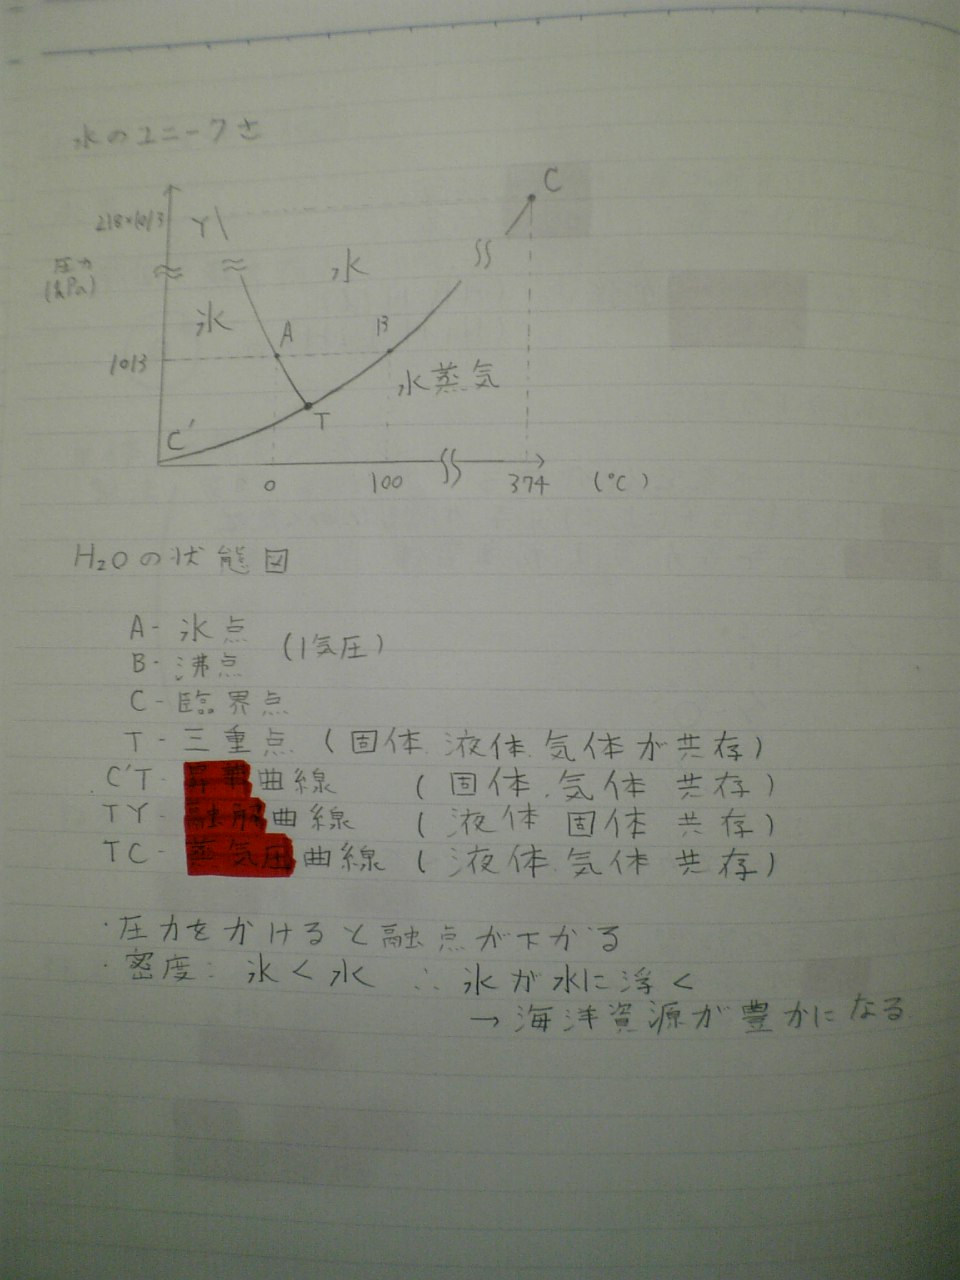 水のユニークさ
C
218×1013
Y
圧力
(hPa)
水
氷
A
B
1013
水蒸気
T
C'
0 100 374 (℃)
H₂Oの状態図
A- 氷点
(1気圧)
B- 沸点
C- 臨界点
T- 三重点 (固体.液体.気体が共存)
C'T- 昇華曲線 (固体.気体 共存)
TY- 融解曲線 (液体 固体 共存)
TC- 蒸気圧曲線 (液体.気体 共存)
・圧力をかけると融点が下がる
・密度: 氷<水 ∴ 氷が水に浮く
→ 海洋資源が豊かになる